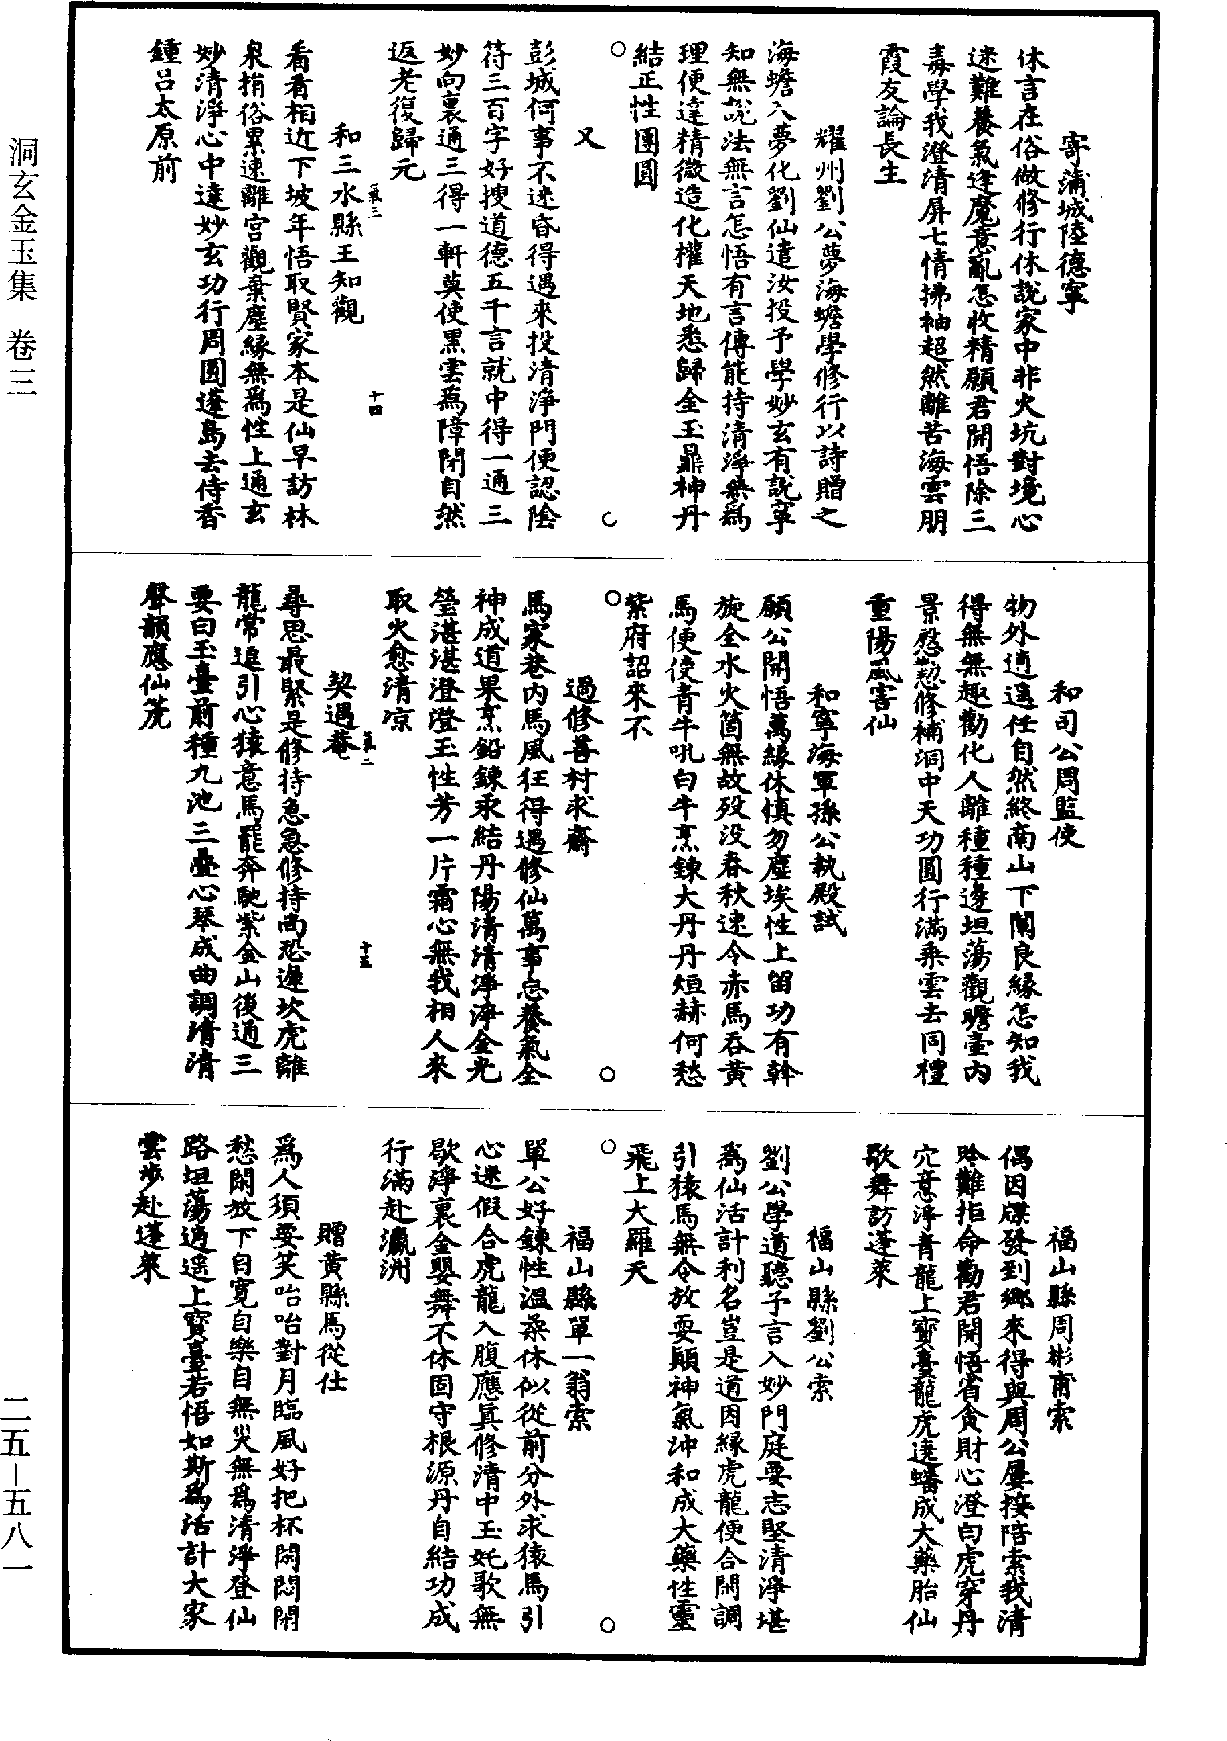 洞玄金玉集　卷三
二五—五八一
寄蒲城陸德寧
休言在俗做修行休說家中非火坑對境心
迷難養氣逢魔意亂怎收精願君開悟除三
毒學我澄清屏七情拂袖超然離苦海雲朋
霞友論長生
耀州劉公夢海蟾學修行以詩贈之
海蟾入夢化劉仙遣汝投予學妙玄有說寧
知無說法無言怎悟有言傳能持清淨無爲
理便達精微造化權天地悉歸金玉鼎神丹
結正性團圓
又
彭城何事不迷昏得遇來投清淨門便認陰
符三百字好搜道德五千言就中得一通三
妙向裏通三得一軒莫使黑雲爲障閉自然
返老復歸元
和三水縣王知觀
十四
看看相近下坡年悟取賢家本是仙早訪林
泉捎俗累速離宮觀棄塵緣無爲性上通玄
妙清淨心中達妙玄功行周圓蓬島去侍香
鍾呂太原前
和司公周監使
物外逍遙任自然終南山下闡良緣怎知我
得無無趣勸化人離種種邊坦蕩觀瞻壷内
景慇懃修補洞中天功圓行滿乘雲去同禮
重陽風害仙
和寧海軍孫公執殿試
願公開悟萬緣休慎勿塵埃性上留功有幹
旋全水火箇無故殁没春秋速令赤馬吞黄
馬便使青牛吼白牛烹鍊大丹丹烜赫何愁
紫府詔來不
過修善村求齋
馬家巷内馬風狂得遇修仙萬事忘養氣全
神成道果烹鉛鍊汞結丹陽清清淨淨金光
瑩湛湛澄澄玉性芳一片霜心無我相人來
取火愈清凉
契遇菴
十五
尋思最緊是修持急急修持尚恐遲坎虎離
龍常追引心猿意馬罷奔馳紫金山後通三
要白玉臺前種九池三疊心琴成曲調清清
聲韻應仙箎
福山縣周彬甫索
偶因牒發到鄉來得與周公屢接陪索我清
吟難拒命勸君開悟省貪財心澄白虎穿丹
穴意淨青龍上寶臺龍虎遶蟠成大藥胎仙
歌舞訪蓬萊
福山縣劉公索
劉公學道聽予言入妙門庭要志堅清淨堪
爲仙活計利名豈是道因緣虎龍便合閑調
引猿馬無令放耍顛神氣沖和成大藥性靈
飛上大羅天
福山縣單一翁索
單公好鍊性温柔休似從前分外求猿馬引
心迷假合虎龍入腹應真修清中玉姹歌無
歇淨裏金嬰舞不休固守根源丹自結功成
行滿赴瀛洲
贈黄縣馬從仕
爲人須要笑咍咍對月臨風好把杯閑悶閑
愁閑放下自寬自樂自無災無爲清淨登仙
路坦蕩逍遥上寶臺若悟如斯爲活計大家
雲步赴蓬萊